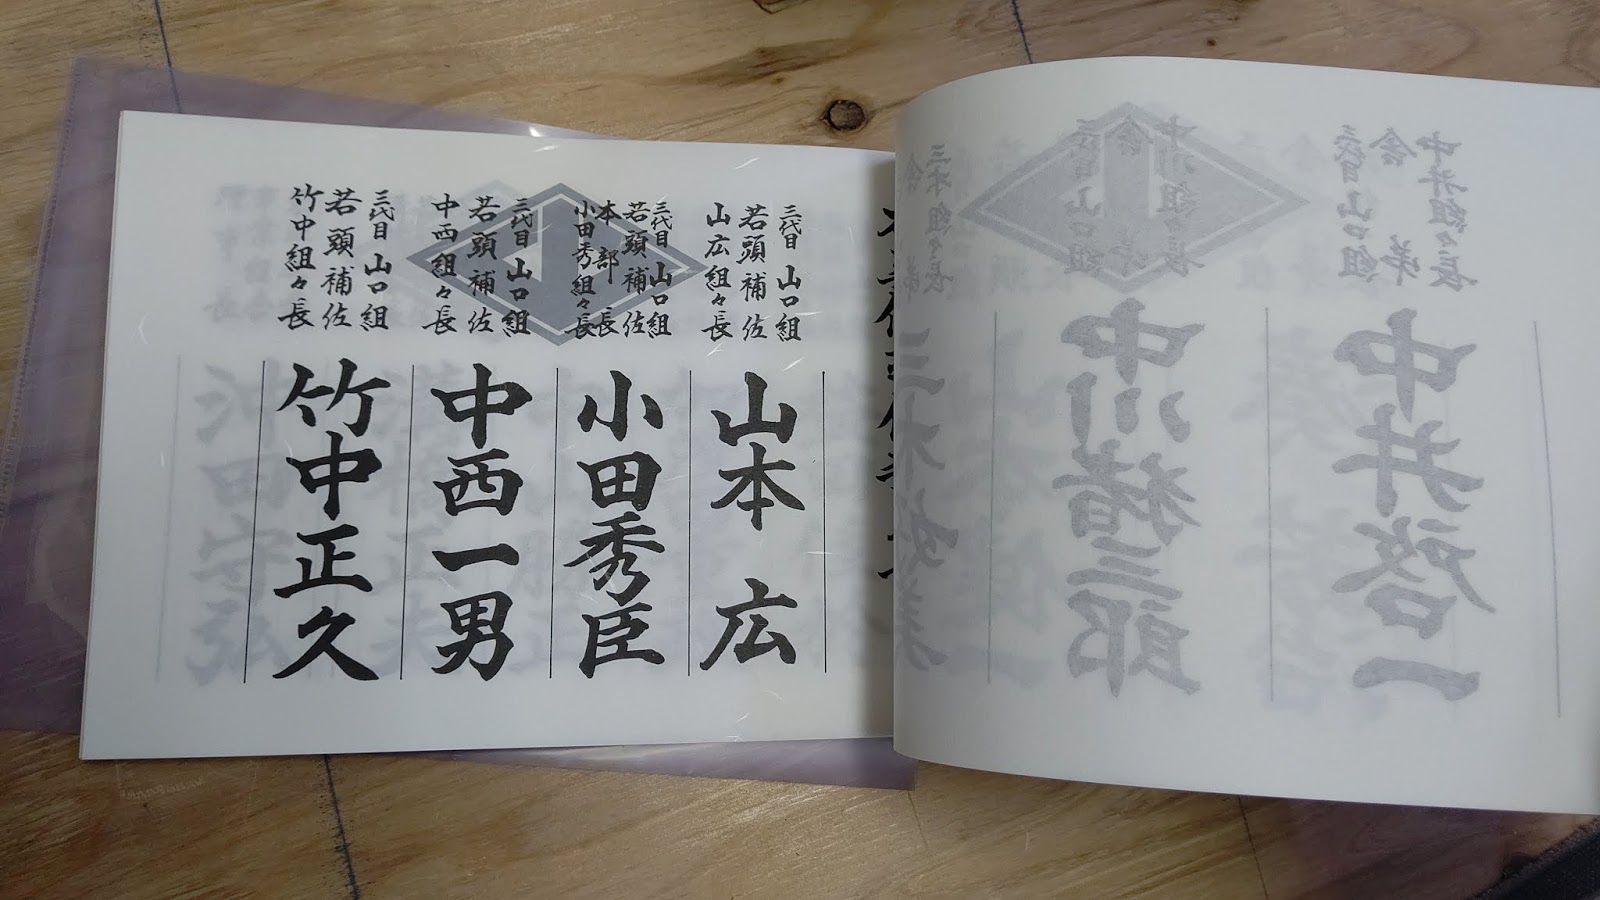 三代目 山口組
若頭補佐
山広組々長
山本 広
三代目 山口組
若頭補佐
本部長
小田秀組々長
小田秀臣
三代目 山口組
若頭補佐
中西組々長
中西一男
三代目 山口組
若頭補佐
竹中組々長
竹中正久
三代目 山口組
舎弟
中井組々長
中井啓一
中川組々長
中川猪三郎